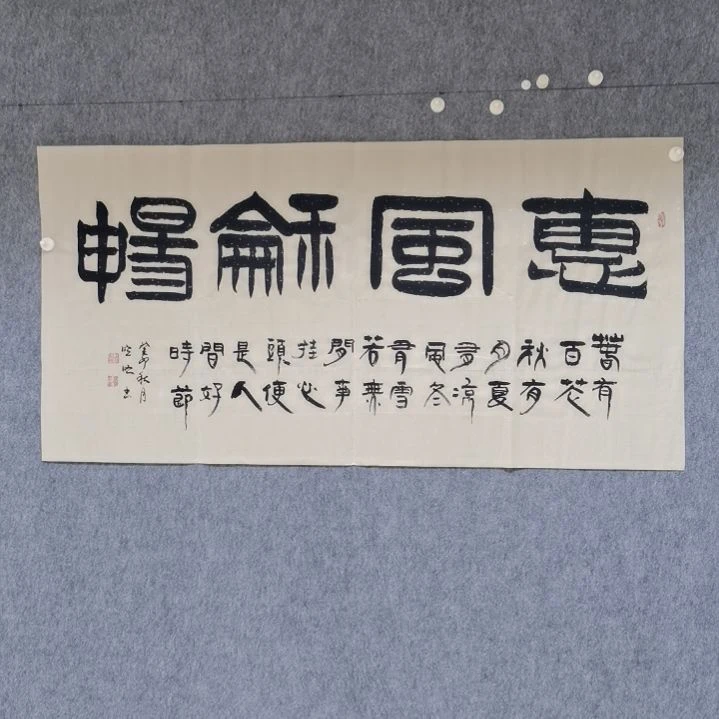 惠風龢暢
春有
百花
秋有
月夏
有涼
風冬
有雪
若無
閒事
挂心
頭便
是人
間好
時節
癸卯秋月